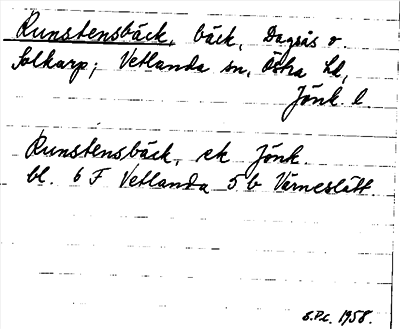 Runstensbäck, bäck, Dagsås o
Solkarp; Vetlanda sn, Östra hd,
Jönk. l.
Runstensbäck, ek Jönk.
bl. 6 F Vetlanda 5 b Värneslätt.
1958.